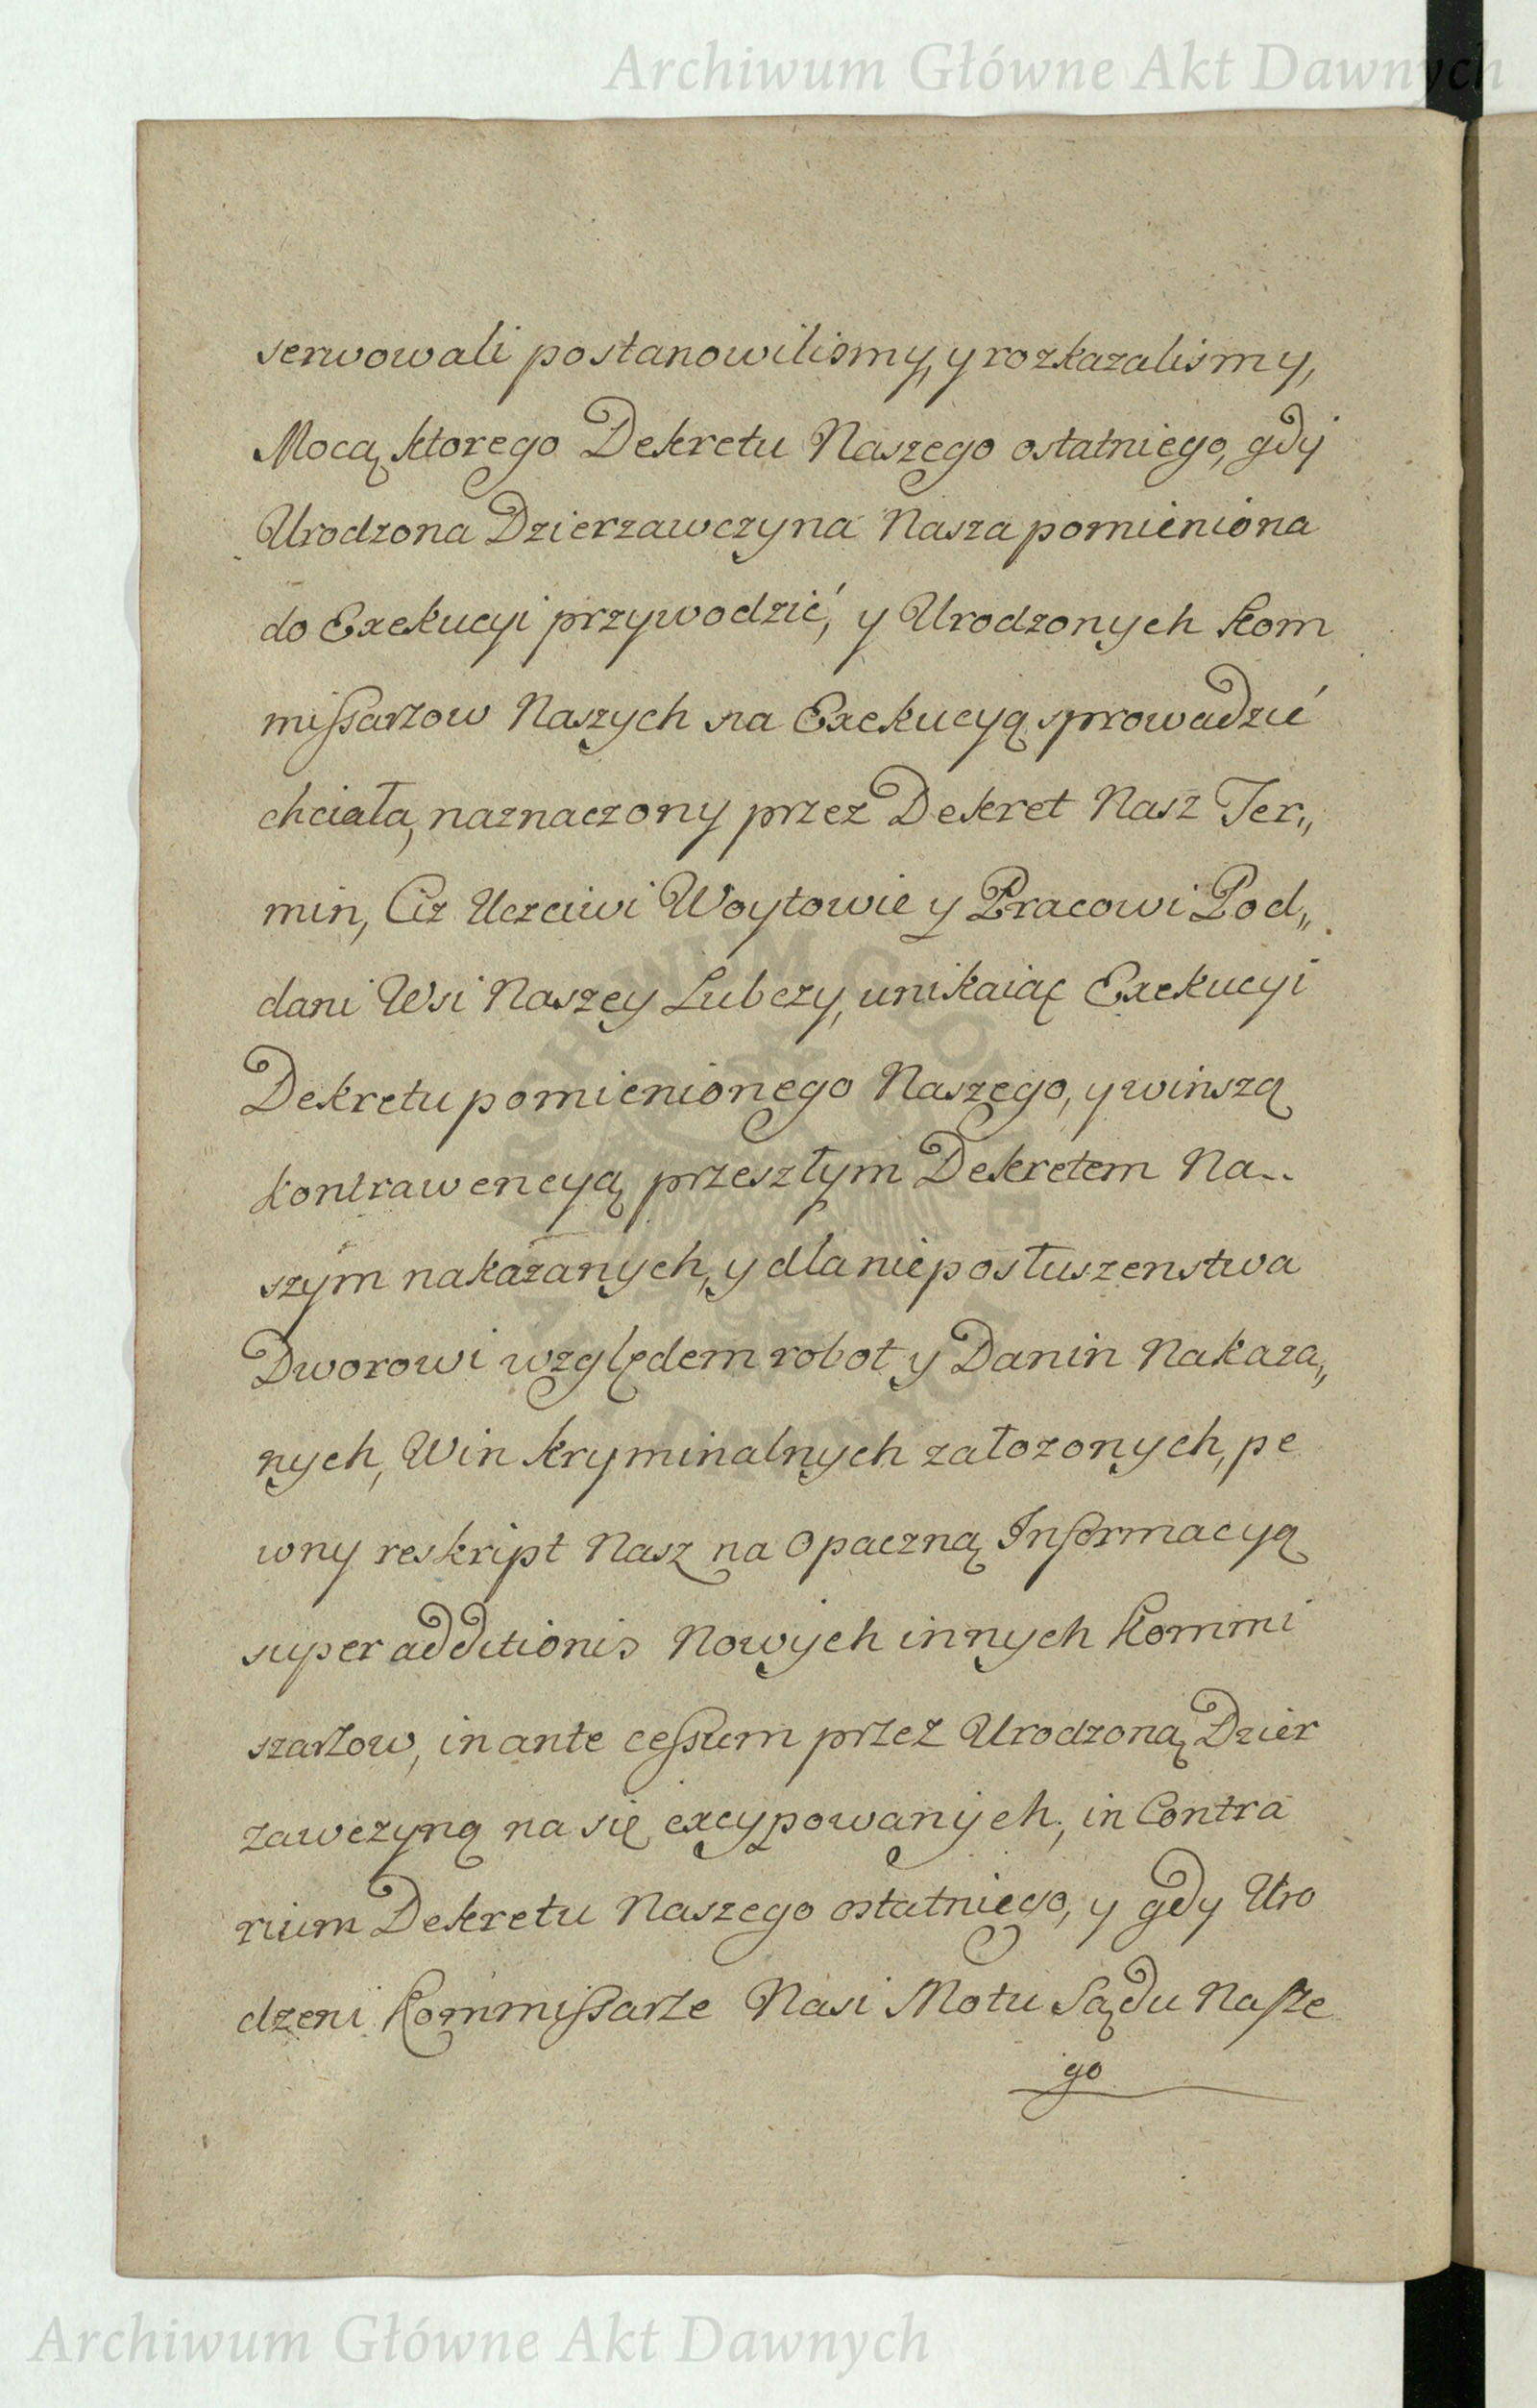 Archiwum Główne Akt Dawnych
serwowali postanowilismy, y rozkazalismy,
Mocą ktorego Dekretu Naszego ostatniego, gdy
Urodzona Dzierzawczyna Nasza pomieniona
do Exekucyi przywodzić, y Urodzonych Kom
missarzow Naszych na Exekucyą sprowadzić
chciała, naznaczony przez Dekret Nasz Ter„
min, Ciz Uczciwi Woytowie y Pracowi Pod„
dani Wsi Naszey Lubczy, unikaiąc Exekucyi
Dekretu pomienionego Naszego, y winszą
kontrawencyą przeszłym Dekretem Na..
szym nakazanych, y dla nieposłuszenstwa
Dworowi względem robot y Danin Nakaza„
nych, Win kryminalnych załozonych, pe
wny reskript Nasz na opaczną Informacyą
super additionis Nowych innych Kommi
szarzow, in ante cessum przez Urodzoną Dzier
zawczyną na się excypowanych, in Contra
rium Dekretu Naszego ostatniego, y gdy Uro
dzeni Kommissarze Nasi Motu Sądu Nasze
go
ARCHIWUM GŁÓWNE AKT DAWNYCH
Archiwum Główne Akt Dawnych